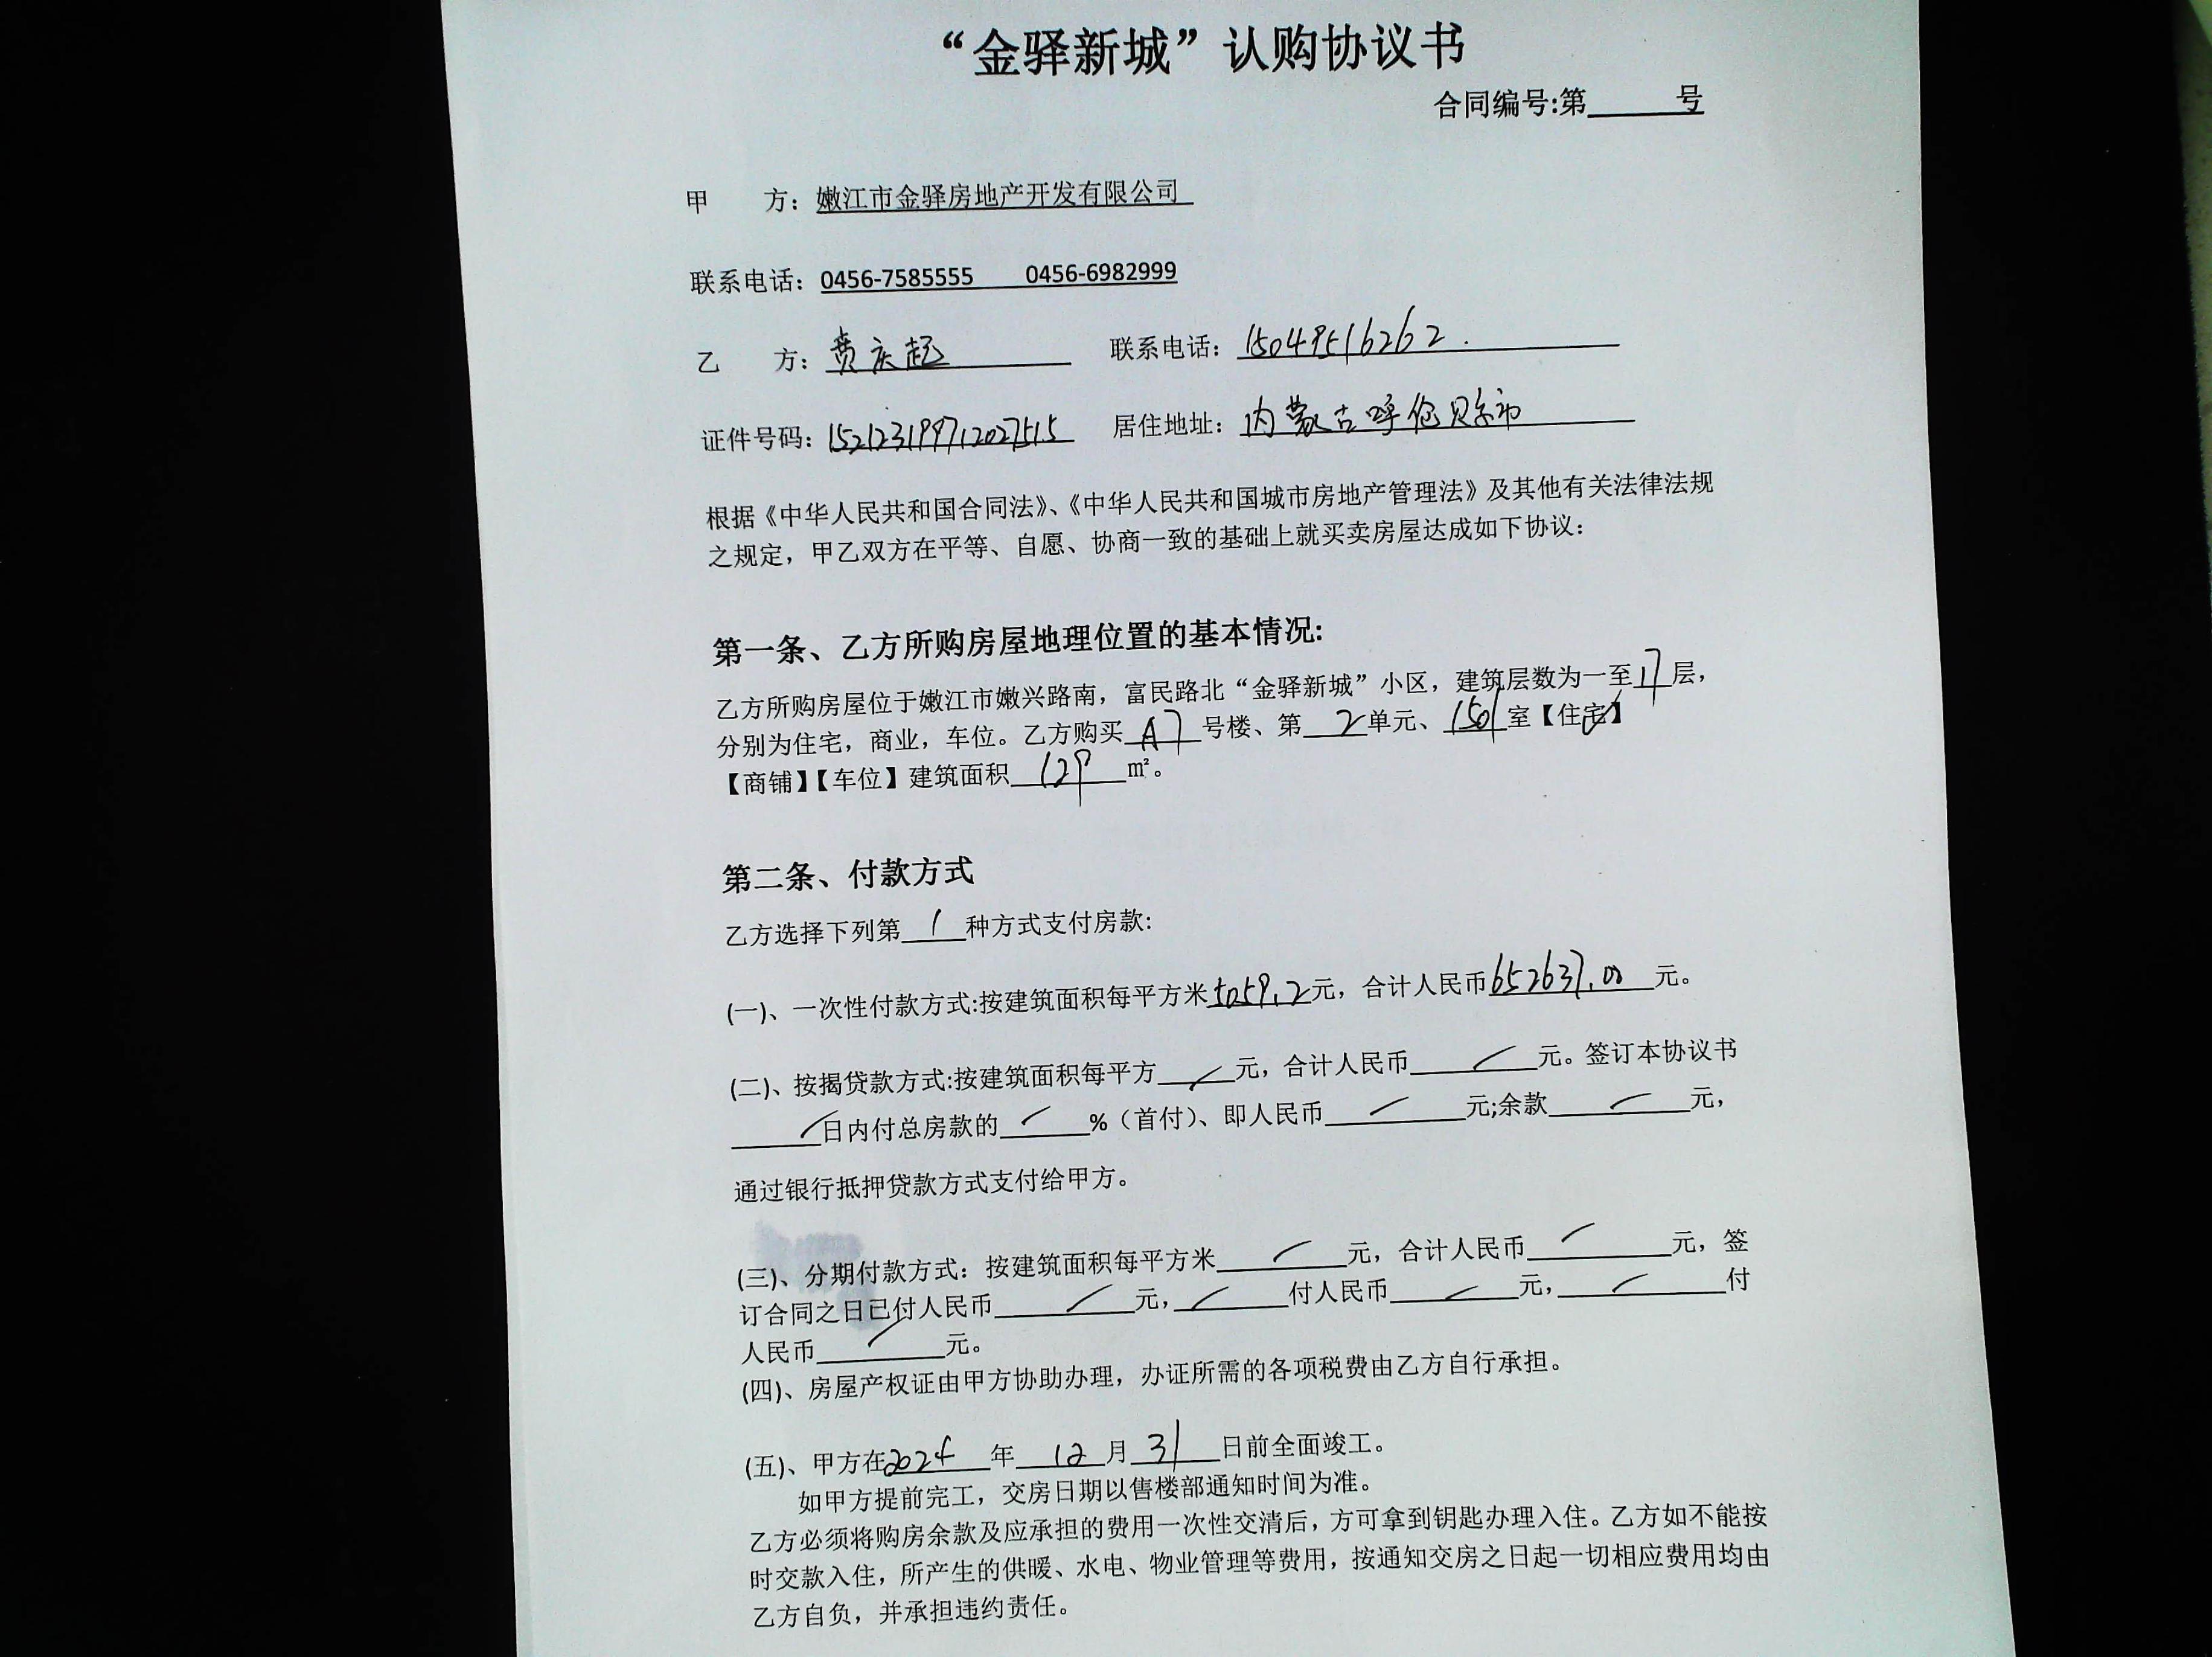 “金驿新城”认购协议书
合同编号:第______号
甲 方：嫩江市金驿房地产开发有限公司
联系电话：0456-7585555 0456-6982999
乙 方：贲庆超 联系电话：15049516262.
证件号码：152123199712027515 居住地址：内蒙古呼伦贝尔市
根据《中华人民共和国合同法》、《中华人民共和国城市房地产管理法》及其他有关法律法规
之规定，甲乙双方在平等、自愿、协商一致的基础上就买卖房屋达成如下协议：
第一条、乙方所购房屋地理位置的基本情况:
乙方所购房屋位于嫩江市嫩兴路南，富民路北“金驿新城”小区，建筑层数为一至17层，
分别为住宅，商业，车位。乙方购买A7号楼、第2单元、1501室【住宅】
【商铺】【车位】建筑面积129㎡。
第二条、付款方式
乙方选择下列第1种方式支付房款:
(一)、一次性付款方式:按建筑面积每平方米5059.2元，合计人民币652637.00元。
(二)、按揭贷款方式:按建筑面积每平方/元，合计人民币/元。签订本协议书
/日内付总房款的/%（首付）、即人民币/元;余款/元，
通过银行抵押贷款方式支付给甲方。
(三)、分期付款方式：按建筑面积每平方米/元，合计人民币/元，签
订合同之日已付人民币/元，/付人民币/元，/付
人民币/元。
(四)、房屋产权证由甲方协助办理，办证所需的各项税费由乙方自行承担。
(五)、甲方在2024年12月31日前全面竣工。
如甲方提前完工，交房日期以售楼部通知时间为准。
乙方必须将购房余款及应承担的费用一次性交清后，方可拿到钥匙办理入住。乙方如不能按
时交款入住，所产生的供暖、水电、物业管理等费用，按通知交房之日起一切相应费用均由
乙方自负，并承担违约责任。